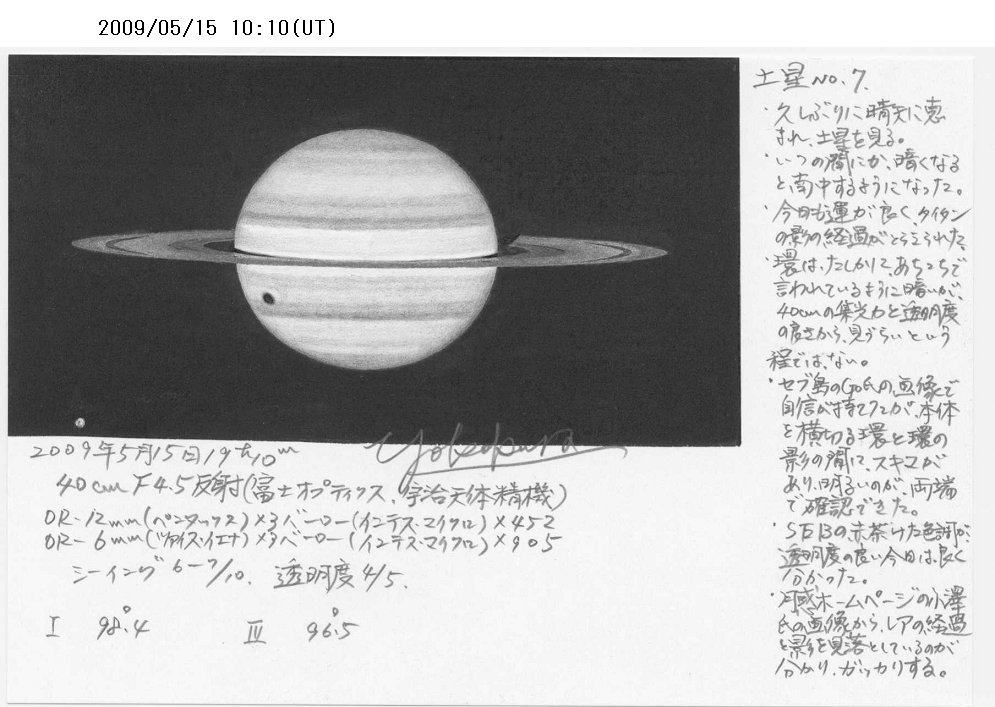 2009/05/15 10:10(UT)
土星 No.7.
・久しぶりに晴天に恵
まれ、土星を見る。
・いつの間にか、暗くなる
と、南中するようになった。
・今日も運が良く、タイタン
の影の経過がとらえられた。
・環は、たしかに、あちこちで
言われているように暗いが、
40cmの集光力と透明度
の良さから、見づらいという
程ではない。
・セブ島のGo氏の画像で
自信が持てたが、本体
を横切る環と環の
影の間に、スキマが
あり、明るいのが、両端
で確認できた。
・SEBの赤茶けた色調が、
透明度の良い今日は、良く
分かった。
・月惑ホームページの小澤
氏の画像から、レアの経過
と影を見落としているのが
分かり、ガッカリする。
Yokokura
2009年5月15日19h10m
40cm F4.5反射(富士オプティクス、宇治天体精機)
OR-12mm(ペンタックス)×3バーロー(インテス・マイクロ)×452
OR-6mm(ツァイス・イエナ)×3バーロー(インテス・マイクロ)×905
シーイング 6-7/10. 透明度 4/5.
I 98.°4 III 96.°5